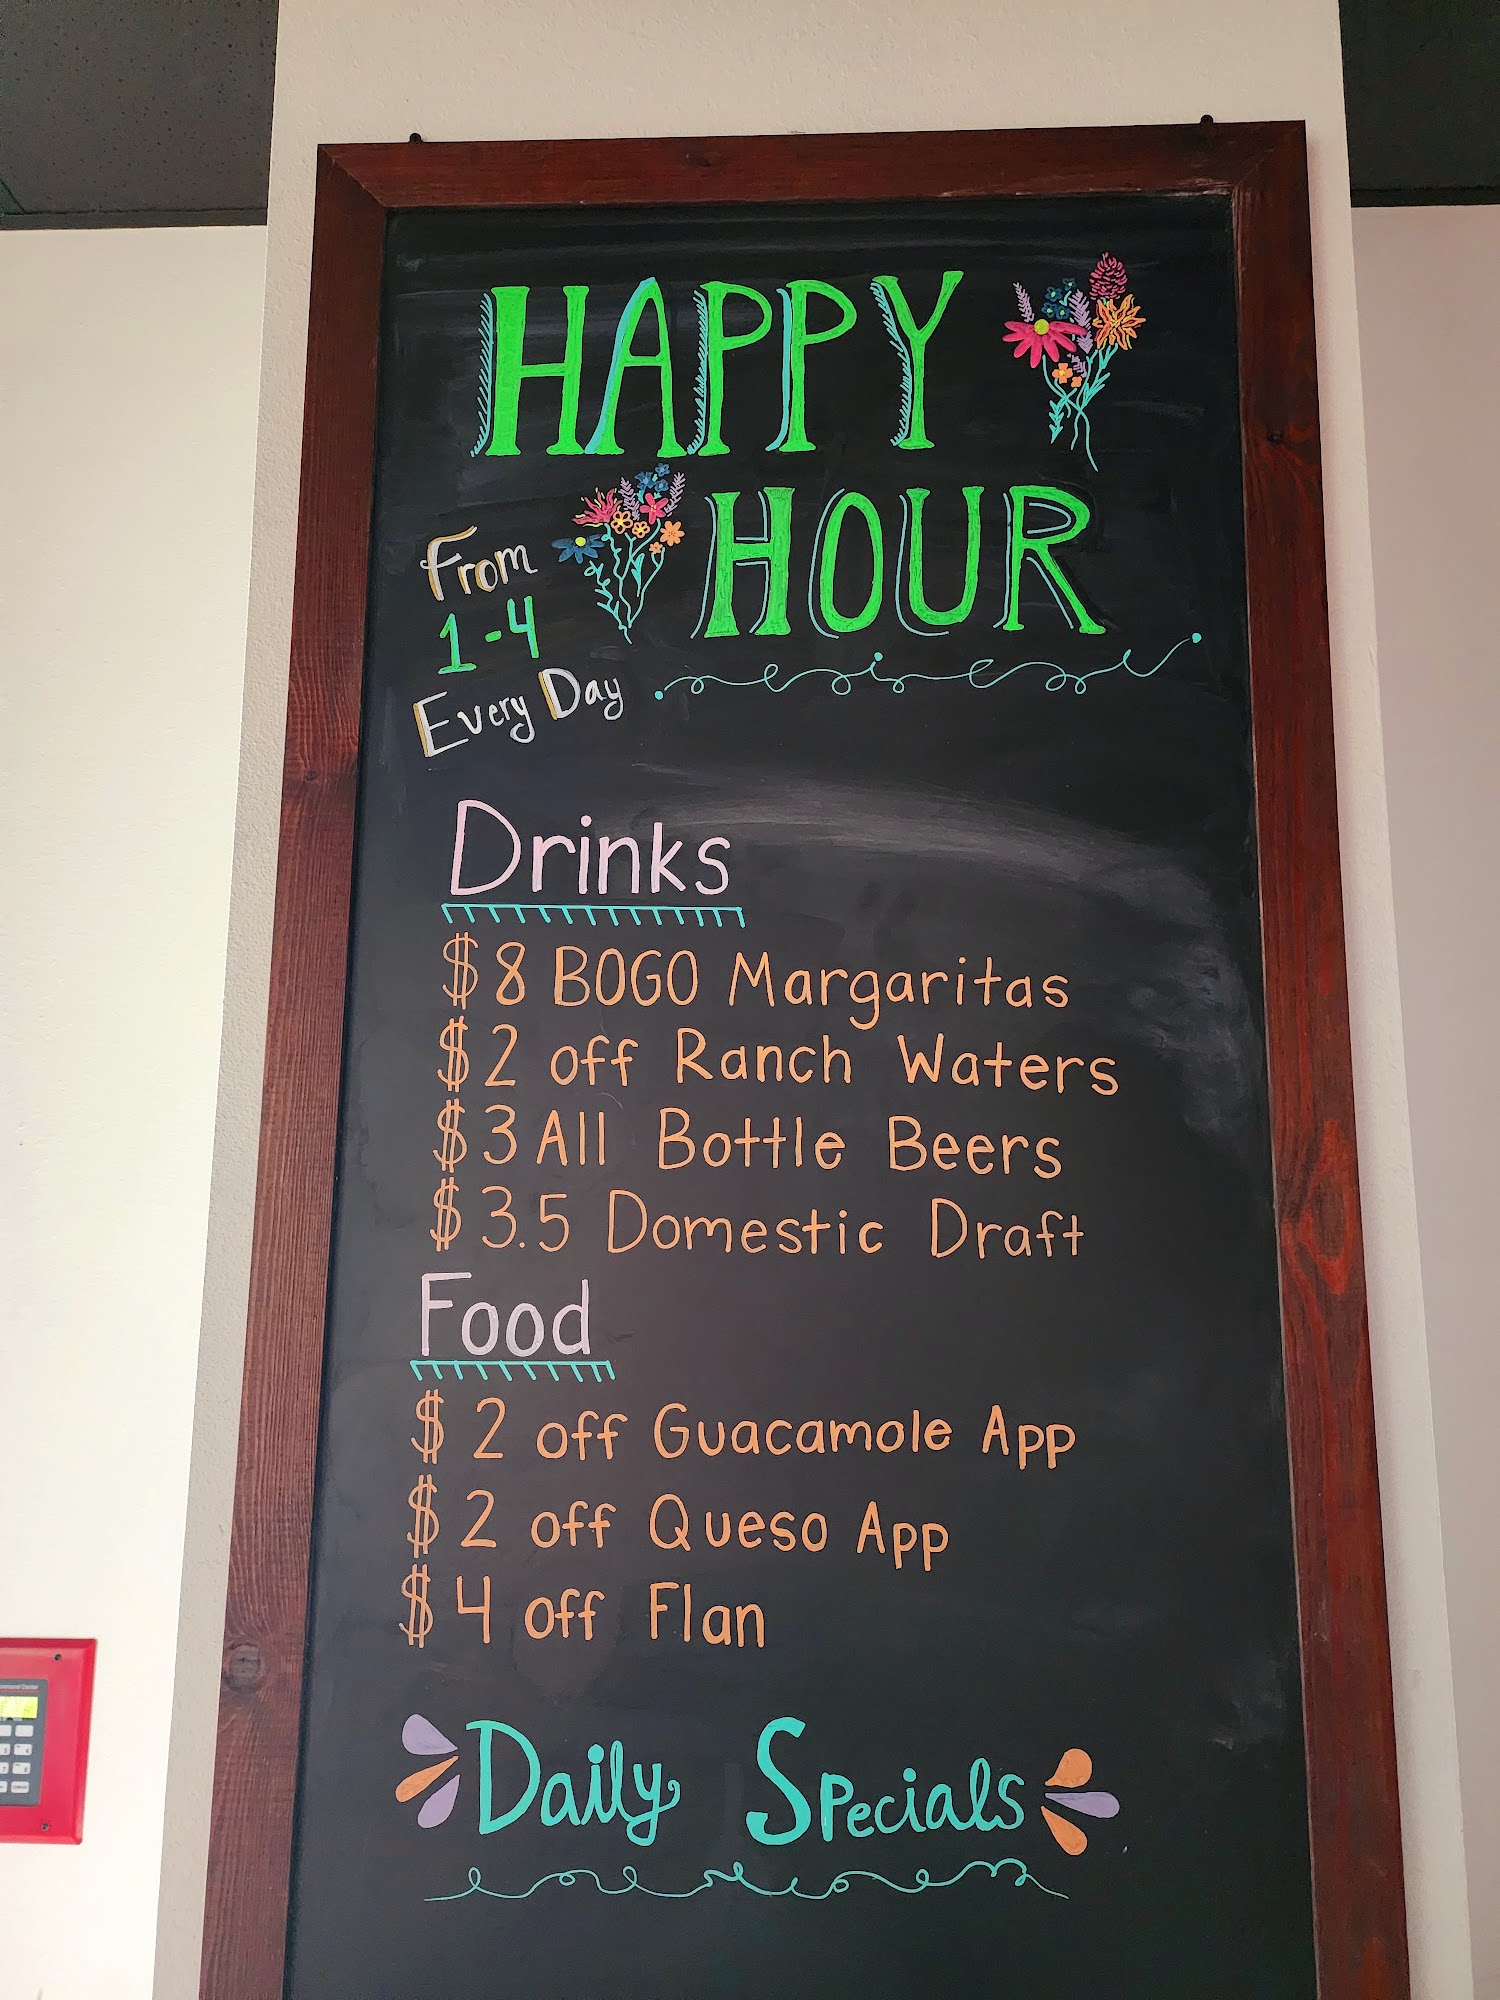 HAPPY
HOUR
From
1-4
Every Day
Drinks
$8 BOGO Margaritas
$2 off Ranch Waters
$3 All Bottle Beers
$3.5 Domestic Draft
Food
$2 off Guacamole App
$2 off Queso App
$4 off Flan
Daily Specials